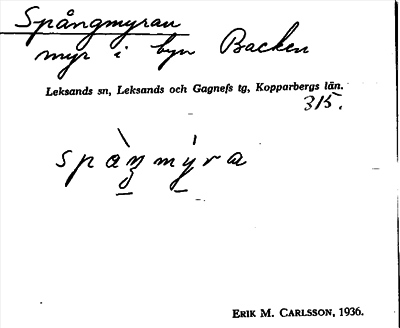 Spångmyran
myr i byn Backen
Leksands sn, Leksands och Gagnefs tg, Kopparbergs län.
315.
spàŋmýra
ERIK M. CARLSSON, 1936.